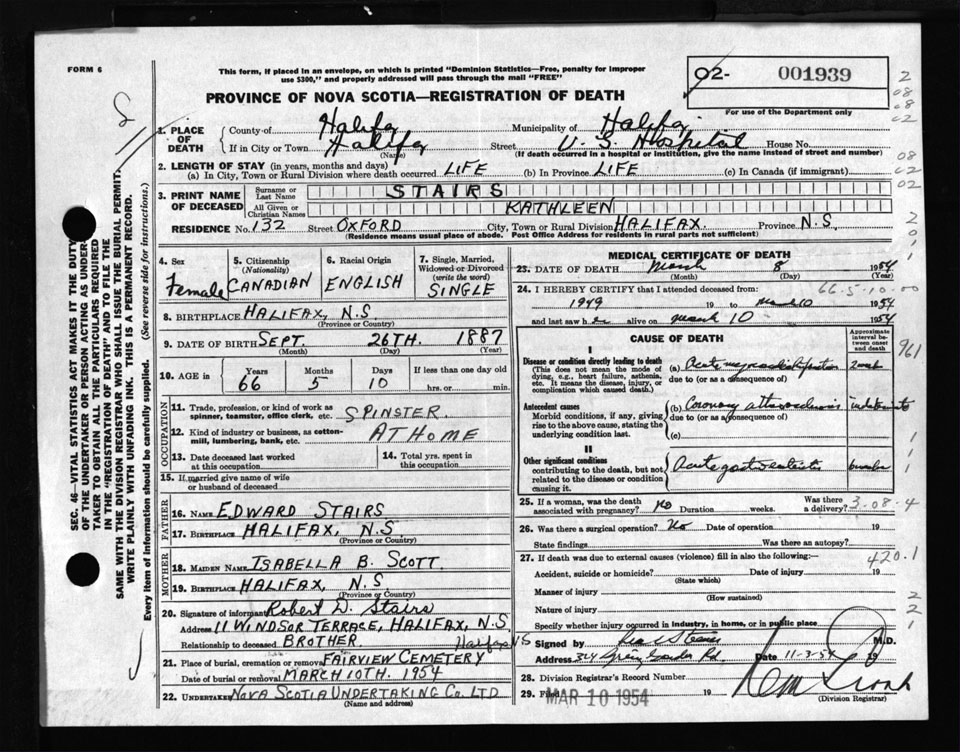 FORM 6
This form, if placed in an envelope, on which is printed "Dominion Statistics—Free, penalty for improper
use $300," and properly addressed will pass through the mail "FREE"
PROVINCE OF NOVA SCOTIA—REGISTRATION OF DEATH
02- 001939
For use of the Department only
2
08
08
02
08
02
02
2
0
1
1. PLACE OF DEATH
County of Halifax Municipality of Halifax
If in City or Town Halifax Street V. G. Hospital House No.
(Name) (If death occurred in a hospital or institution, give the name instead of street and number)
2. LENGTH OF STAY (in years, months and days)
(a) In City, Town or Rural Division where death occurred LIFE (b) In Province LIFE (c) In Canada (if immigrant)
3. PRINT NAME OF DECEASED
Surname or Last Name STAIRS
All Given or Christian Names KATHLEEN
RESIDENCE No. 132 Street OXFORD City, Town or Rural Division HALIFAX. Province N.S.
(Residence means usual place of abode. Post Office Address for residents in rural parts not sufficient)
SEC. 46—VITAL STATISTICS ACT MAKES IT THE DUTY
OF THE UNDERTAKER OR PERSON ACTING AS UNDER-
TAKER TO OBTAIN ALL THE PARTICULARS REQUIRED
IN THE "REGISTRATION OF DEATH" AND TO FILE THE
SAME WITH THE DIVISION REGISTRAR WHO SHALL ISSUE THE BURIAL PERMIT.
WRITE PLAINLY WITH UNFADING INK. THIS IS A PERMANENT RECORD.
Every item of information should be carefully supplied. (See reverse side for instructions.)
4. Sex
Female
5. Citizenship
(Nationality)
CANADIAN
6. Racial Origin
ENGLISH
7. Single, Married,
Widowed or Divorced
(write the word)
SINGLE
8. BIRTHPLACE HALIFAX, N.S.
(Province or Country)
9. DATE OF BIRTH SEPT. 26TH. 1887
(Month) (Day) (Year)
10. AGE in Years Months Days If less than one day old
66 5 10 hrs. or min.
OCCUPATION
11. Trade, profession, or kind of work as
spinner, teamster, office clerk, etc. SPINSTER
12. Kind of industry or business, as cotton-
mill, lumbering, bank, etc. AT HOME
13. Date deceased last worked
at this occupation
14. Total yrs. spent in
this occupation
15. If married give name of wife
or husband of deceased
FATHER
16. Name EDWARD STAIRS
17. Birthplace HALIFAX, N.S
(Province or Country)
MOTHER
18. Maiden Name ISABELLA B. SCOTT.
19. Birthplace HALIFAX, N.S
(Province or Country)
20. Signature of informant Robert D. Stairs
Address 11 WINDSOR TERRACE, HALIFAX, N.S
Relationship to deceased BROTHER Halifax NS
21. Place of burial, cremation or removal FAIRVIEW CEMETERY
Date of burial or removal MARCH 10TH. 1954
22. UNDERTAKER NOVA SCOTIA UNDERTAKING CO. LTD
(Name and address)
MEDICAL CERTIFICATE OF DEATH
23. DATE OF DEATH March 8 1954
(Month) (Day) (Year)
24. I HEREBY CERTIFY that I attended deceased from: 66-5-10-00
1949 19 to March 10 1954
and last saw her alive on March 10 1954
CAUSE OF DEATH
Approximate
interval be-
tween onset
and death
961
I
Disease or condition directly leading to death
(This does not mean the mode of
dying, e.g., heart failure, asthenia,
etc. It means the disease, injury, or
complication which caused death.)
(a) Acute myocardial
due to (or as a consequence of)
Antecedent causes
Morbid conditions, if any, giving
rise to the above cause, stating the
underlying condition last.
(b) Coronary indeterminate
due to (or as a consequence of)
(c)
II
Other significant conditions
contributing to the death, but not
related to the disease or condition
causing it.
Acute
1
1
1
25. If a woman, was the death
associated with pregnancy? No Duration weeks. Was there
a delivery? 3-08-4
26. Was there a surgical operation? No Date of operation 19
State findings Was there an autopsy?
27. If death was due to external causes (violence) fill in also the following:— 420.1
Accident, suicide or homicide? Date of injury 19
(State which)
Manner of injury
(How sustained)
Nature of injury
Specify whether injury occurred in industry, in home, or in public place
2
2
1
Signed by M.D.
Address 324 Spring Garden Rd. Date 11-3-54 19
28. Division Registrar's Record Number
29. Filed MAR 10 1954 19
(Division Registrar)